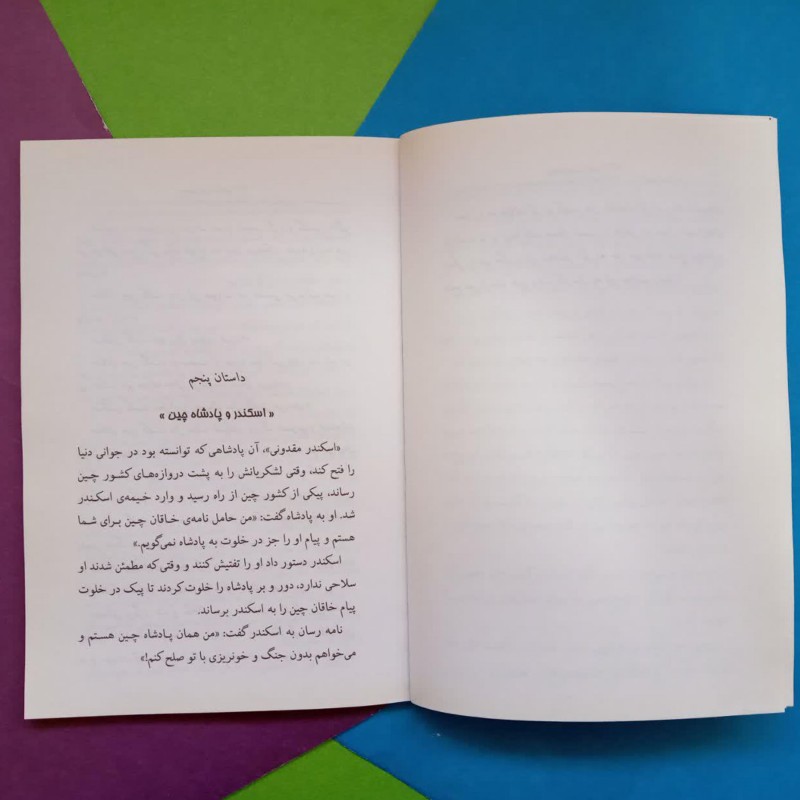 داستان پنجم
« اسکندر و پادشاه چین »
«اسکندر مقدونی»، آن پادشاهی که توانسته بود در جوانی دنیا
را فتح کند، وقتی لشکریانش را به پشت دروازه‌های کشور چین
رساند، پیکی از کشور چین از راه رسید و وارد خیمه‌ی اسکندر
شد. او به پادشاه گفت: «من حامل نامه‌ی خاقان چین برای شما
هستم و پیام او را جز در خلوت به پادشاه نمی‌گویم.»
اسکندر دستور داد او را تفتیش کنند و وقتی که مطمئن شدند او
سلاحی ندارد، دور و بر پادشاه را خلوت کردند تا پیک در خلوت
پیام خاقان چین را به اسکندر برساند.
نامه رسان به اسکندر گفت: «من همان پادشاه چین هستم و
می‌خواهم بدون جنگ و خونریزی با تو صلح کنم!»